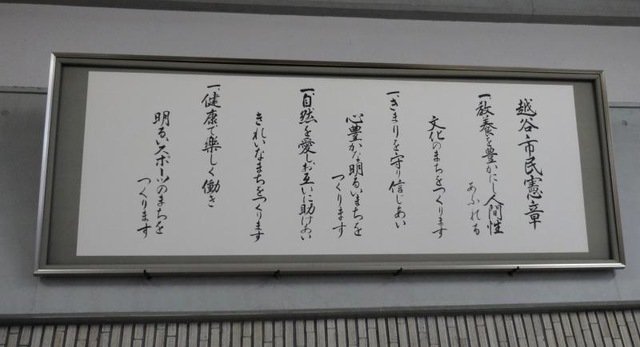 越谷市民憲章
一、教養を豊かにし人間性
あふれる
文化のまちをつくります
一、きまりを守り信じあい
心豊かな明るいまちを
つくります
一、自然を愛しお互いに助けあい
きれいなまちをつくります
一、健康で楽しく働き
明るいスポーツのまちを
つくります